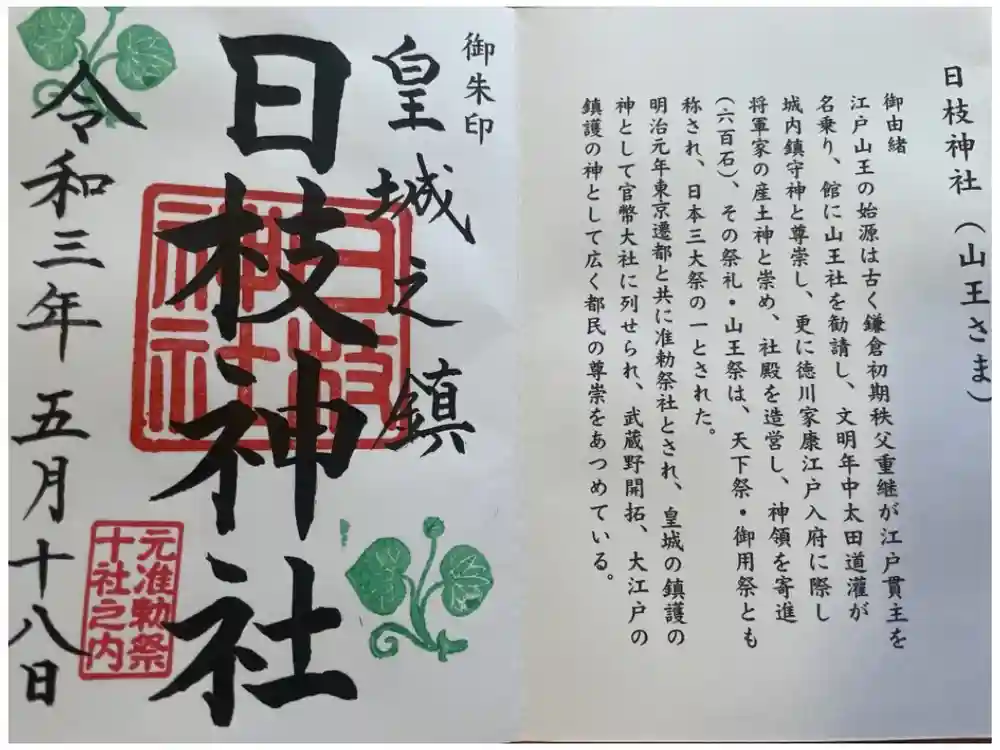 日枝神社（山王さま）
御由緒
江戸山王の始源は古く鎌倉初期秩父重継が江戸貫主を
名乗り、館に山王社を勧請し、文明年中太田道灌が
城内鎮守神と尊崇し、更に徳川家康江戸入府に際し
将軍家の産土神と崇め、社殿を造営し、神領を寄進
（六百石）、その祭礼・山王祭は、天下祭・御用祭とも
称され、日本三大祭の一とされた。
明治元年東京遷都と共に准勅祭社とされ、皇城の鎮護の
神として官幣大社に列せられ、武蔵野開拓、大江戸の
鎮護の神として広く都民の尊崇をあつめている。
御朱印
皇城之鎮
日枝神社
日枝
神社
元准勅祭
十社之内
令和三年五月十八日